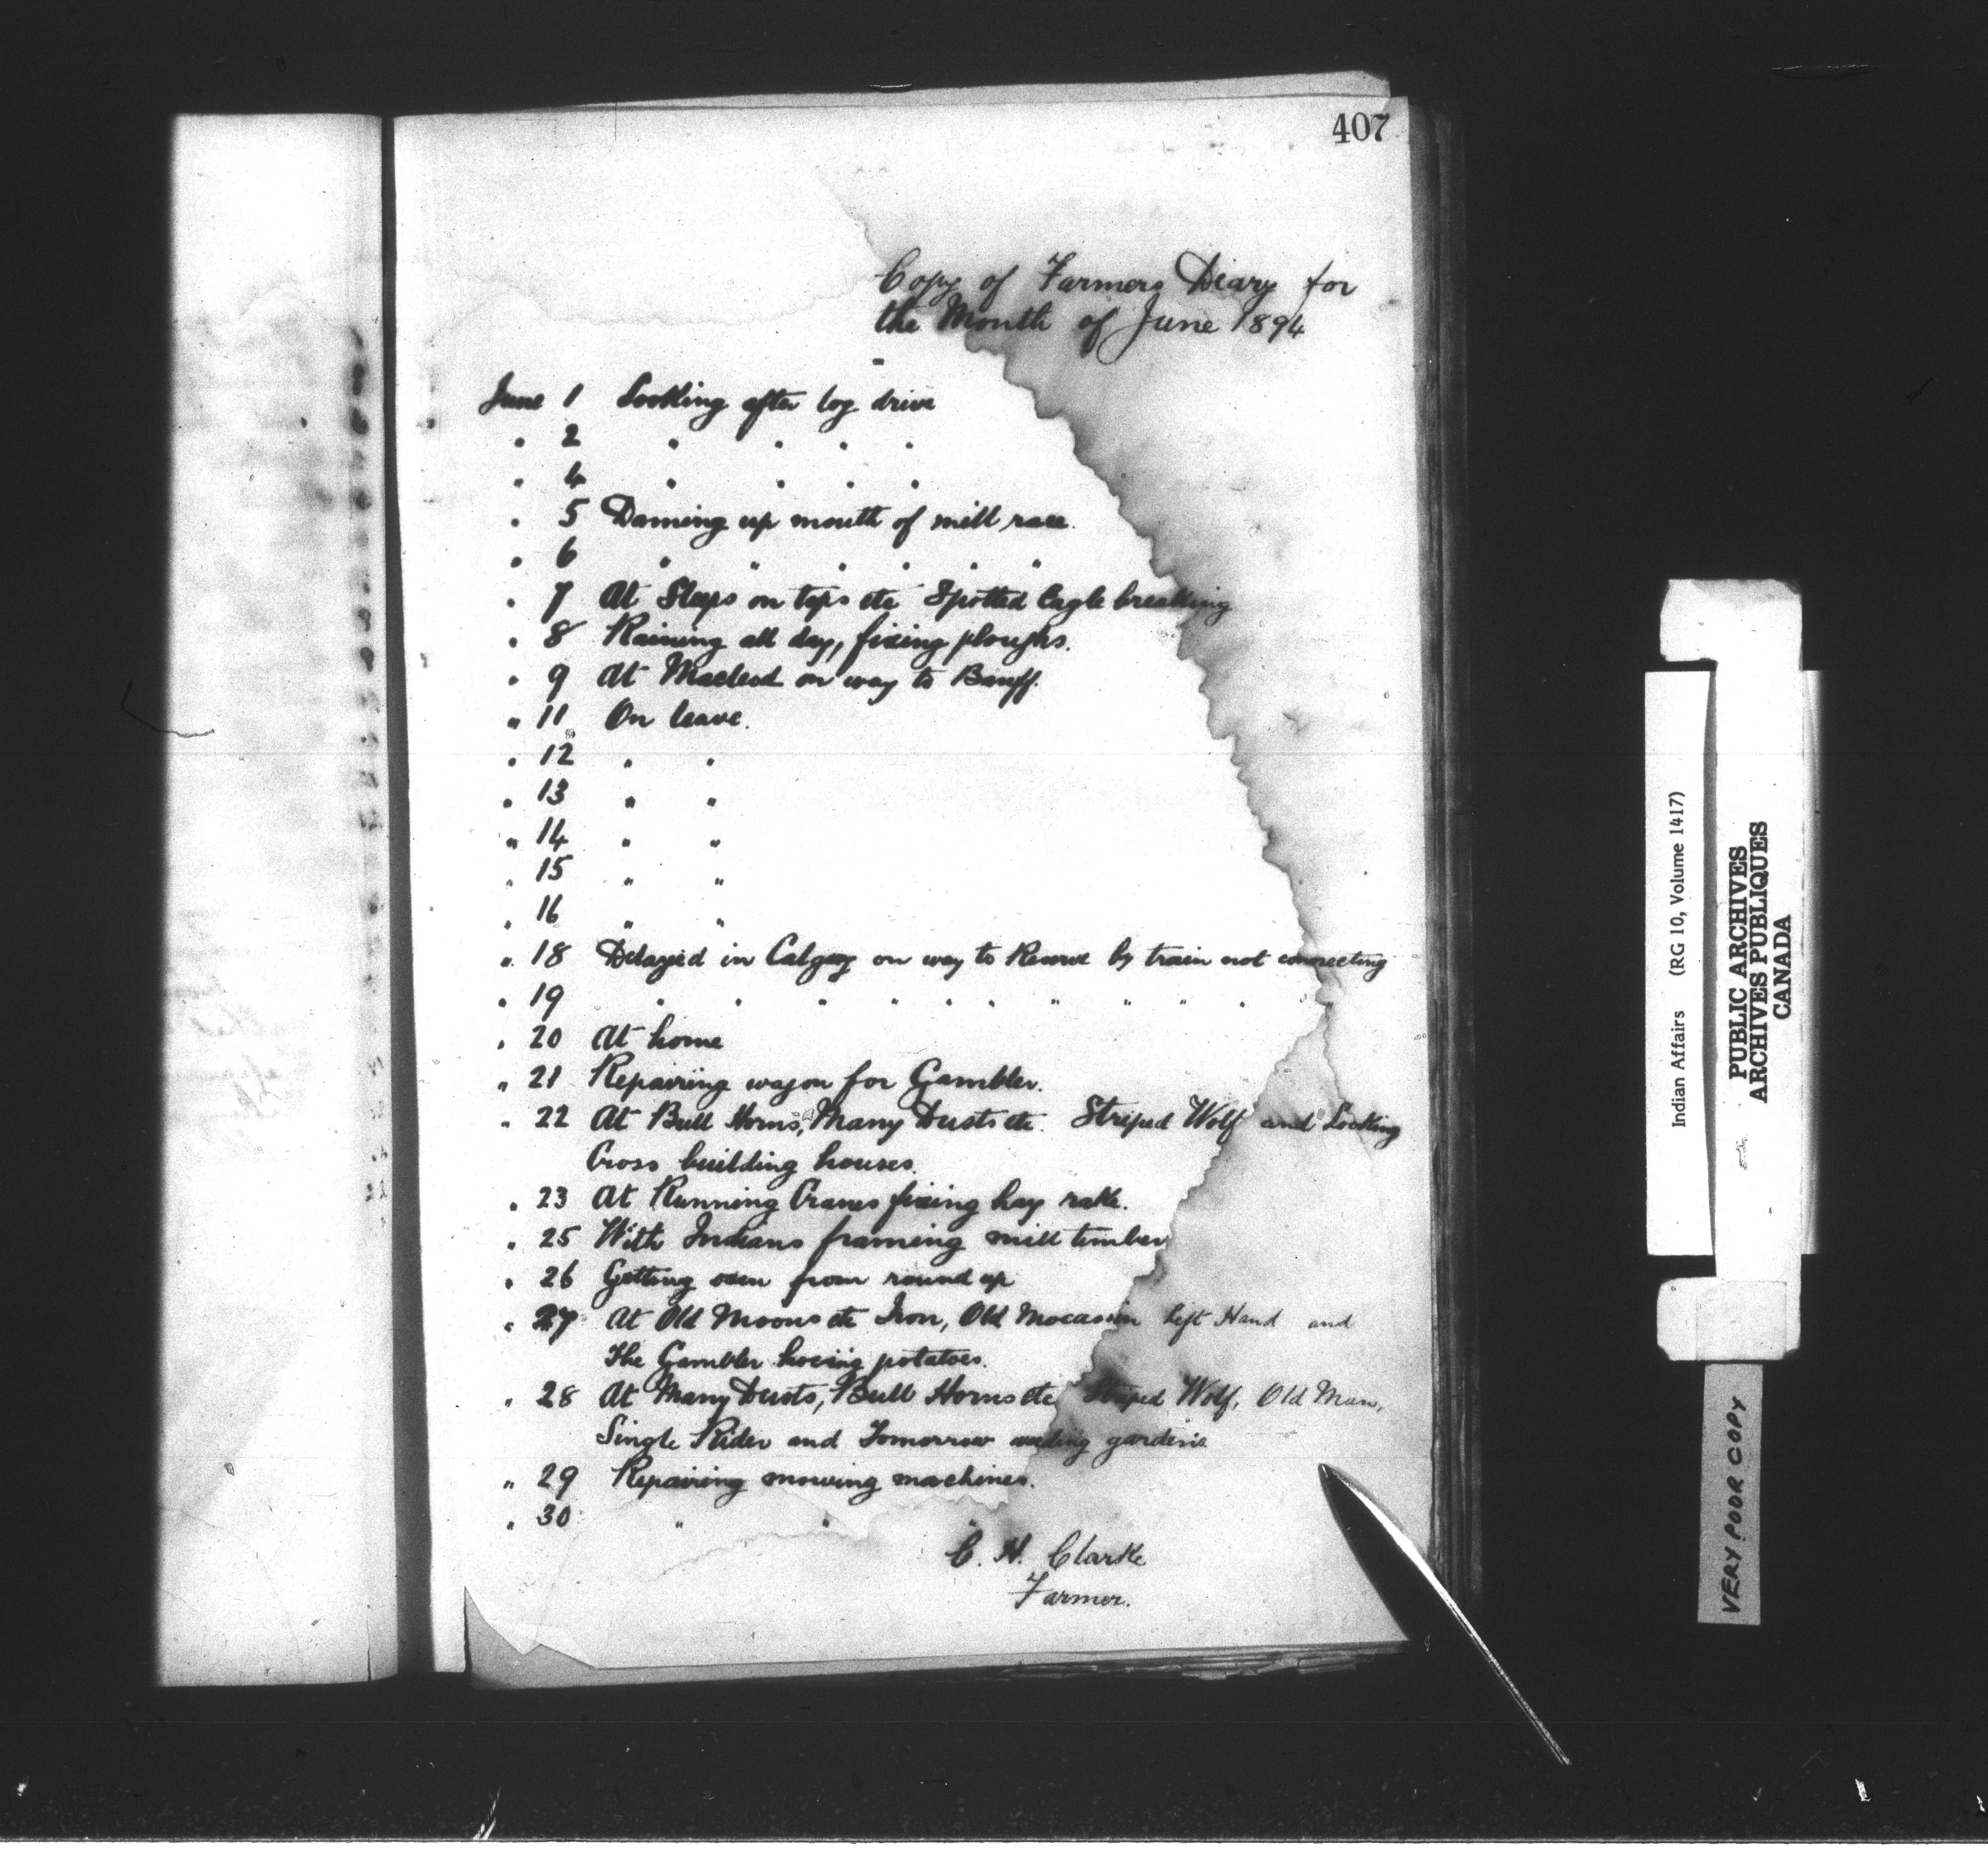 407
Copy of Farmers Diary for
the Month of June 1894
June 1 Looking after log drive
" 2 " " " "
" 4 " " " "
" 5 Daming up mouth of mill race.
" 6 " " " " " "
" 7 At Sleeps on tops etc Spotted Eagle breaking
" 8 Raining all day, fixing ploughs.
" 9 At Macleod on way to Banff.
" 11 On leave.
" 12 " "
" 13 " "
" 14 " "
" 15 " "
" 16 " "
" 18 Delayed in Calgary on way to Reserve by train not connecting
" 19 " " " " " " " " " " "
" 20 At home
" 21 Repairing wagon for Gambler.
" 22 At Bull Horns, Many Dusts etc. Striped Wolf and Looking
Cross building houses.
" 23 At Running Cranes fixing hay rake.
" 25 With Indians framing mill timber
" 26 Getting oxen from round up
" 27 At Old Moons etc Iron, Old Mocasin Left Hand and
The Gambler hoeing potatoes.
" 28 At Many Dusts, Bull Horns etc Striped Wolf, Old Man,
Single Rider and Tomorrow weeding gardens
" 29 Repairing mowing machines.
" 30 " " "
C. H. Clarke
Farmer.
Indian Affairs (RG 10, Volume 1417)
PUBLIC ARCHIVES
ARCHIVES PUBLIQUES
CANADA
VERY POOR COPY